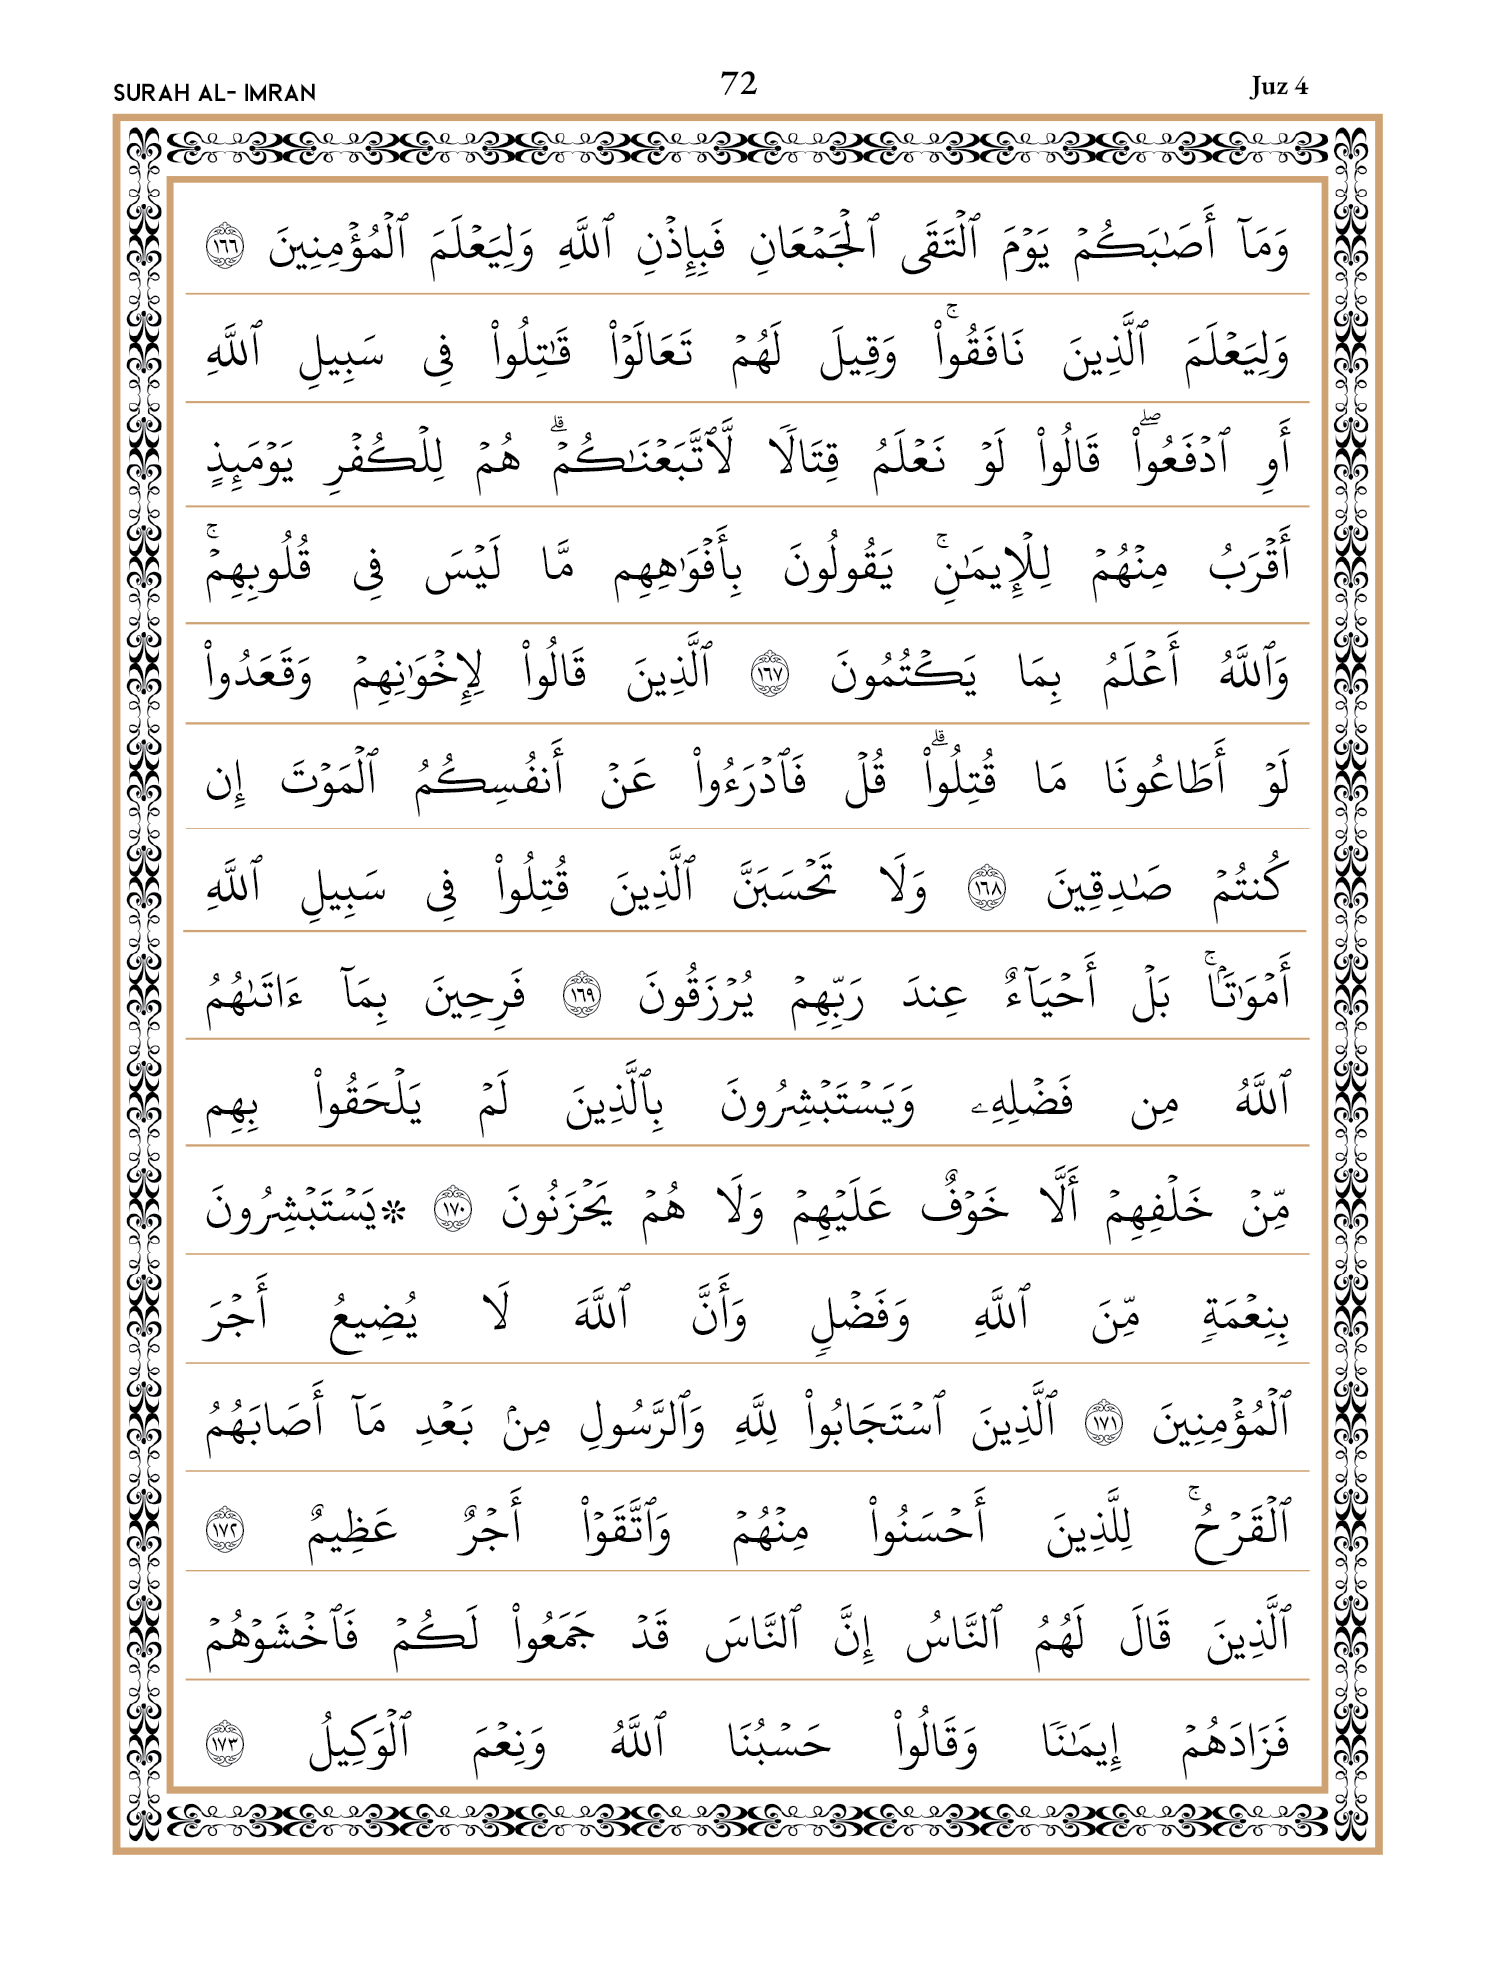 SURAH AL- IMRAN 72 Juz 4
وَمَآ أَصَٰبَكُمۡ يَوۡمَ ٱلۡتَقَى ٱلۡجَمۡعَانِ فَبِإِذۡنِ ٱللَّهِ وَلِيَعۡلَمَ ٱلۡمُؤۡمِنِينَ ١٦٦
وَلِيَعۡلَمَ ٱلَّذِينَ نَافَقُواْۚ وَقِيلَ لَهُمۡ تَعَالَوۡاْ قَٰتِلُواْ فِي سَبِيلِ ٱللَّهِ
أَوِ ٱدۡفَعُواْۖ قَالُواْ لَوۡ نَعۡلَمُ قِتَالٗا لَّٱتَّبَعۡنَٰكُمۡۗ هُمۡ لِلۡكُفۡرِ يَوۡمَئِذٍ
أَقۡرَبُ مِنۡهُمۡ لِلۡإِيمَٰنِۚ يَقُولُونَ بِأَفۡوَٰهِهِم مَّا لَيۡسَ فِي قُلُوبِهِمۡۚ
وَٱللَّهُ أَعۡلَمُ بِمَا يَكۡتُمُونَ ١٦٧ ٱلَّذِينَ قَالُواْ لِإِخۡوَٰنِهِمۡ وَقَعَدُواْ
لَوۡ أَطَاعُونَا مَا قُتِلُواْۗ قُلۡ فَٱدۡرَءُواْ عَنۡ أَنفُسِكُمُ ٱلۡمَوۡتَ إِن
كُنتُمۡ صَٰدِقِينَ ١٦٨ وَلَا تَحۡسَبَنَّ ٱلَّذِينَ قُتِلُواْ فِي سَبِيلِ ٱللَّهِ
أَمۡوَٰتَۢاۚ بَلۡ أَحۡيَآءٌ عِندَ رَبِّهِمۡ يُرۡزَقُونَ ١٦٩ فَرِحِينَ بِمَآ ءَاتَىٰهُمُ
ٱللَّهُ مِن فَضۡلِهِۦ وَيَسۡتَبۡشِرُونَ بِٱلَّذِينَ لَمۡ يَلۡحَقُواْ بِهِم
مِّنۡ خَلۡفِهِمۡ أَلَّا خَوۡفٌ عَلَيۡهِمۡ وَلَا هُمۡ يَحۡزَنُونَ ١٧٠ ۞يَسۡتَبۡشِرُونَ
بِنِعۡمَةٖ مِّنَ ٱللَّهِ وَفَضۡلٖ وَأَنَّ ٱللَّهَ لَا يُضِيعُ أَجۡرَ
ٱلۡمُؤۡمِنِينَ ١٧١ ٱلَّذِينَ ٱسۡتَجَابُواْ لِلَّهِ وَٱلرَّسُولِ مِنۢ بَعۡدِ مَآ أَصَابَهُمُ
ٱلۡقَرۡحُۚ لِلَّذِينَ أَحۡسَنُواْ مِنۡهُمۡ وَٱتَّقَوۡاْ أَجۡرٌ عَظِيمٌ ١٧٢
ٱلَّذِينَ قَالَ لَهُمُ ٱلنَّاسُ إِنَّ ٱلنَّاسَ قَدۡ جَمَعُواْ لَكُمۡ فَٱخۡشَوۡهُمۡ
فَزَادَهُمۡ إِيمَٰنٗا وَقَالُواْ حَسۡبُنَا ٱللَّهُ وَنِعۡمَ ٱلۡوَكِيلُ ١٧٣